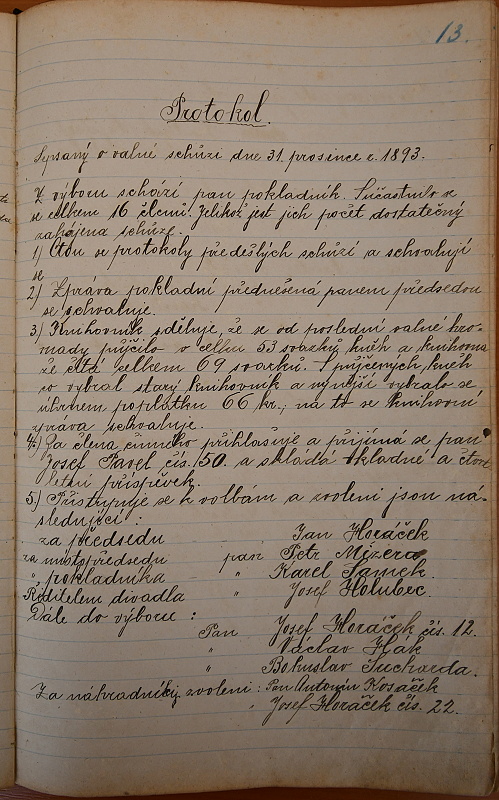 13.
Protokol.
Sepsaný o valné schůzi dne 31. prosince r. 1893.
Z výboru schází pan pokladník. Súčastnilo se
se celkem 16 členů. Jelikož jest jich počet dostatečný
zahájena schůze.
1) Čtou se protokoly předešlých schůzí a schvalují
se
2) Zpráva pokladní přednešená panem předsedou
se schvaluje.
3) Knihovník sděluje, že se od poslední valné hro-
mady půjčilo v celku 53 svazků kněh a knihovna
že čítá celkem 69 svazků. Z půjčených kněh
co vybral starý knihovník a nynější vybralo se
úhrnem poplatku 66 kr., na to se knihovní
zpráva schvaluje.
4.) Za člena činného přihlašuje a přijímá se pan
Josef Pavel čís. 50. a skládá vkladné a čtvrt
letní příspěvek.
5.) Přistupuje se k volbám a zvoleni jsou ná-
sledující:
za předsedu Jan Horáček
za místopředsedu pan Petr Mizera
" pokladníka " Karel Samek.
Ředitelem divadla " Josef Holubec.
Dále do výboru:
Pan Josef Horáček čís. 12.
" Václav Hák
" Bohuslav Sucharda.
Za náhradníky zvoleni: Pan Antonín Kosáček
" Josef Horáček čís. 22.